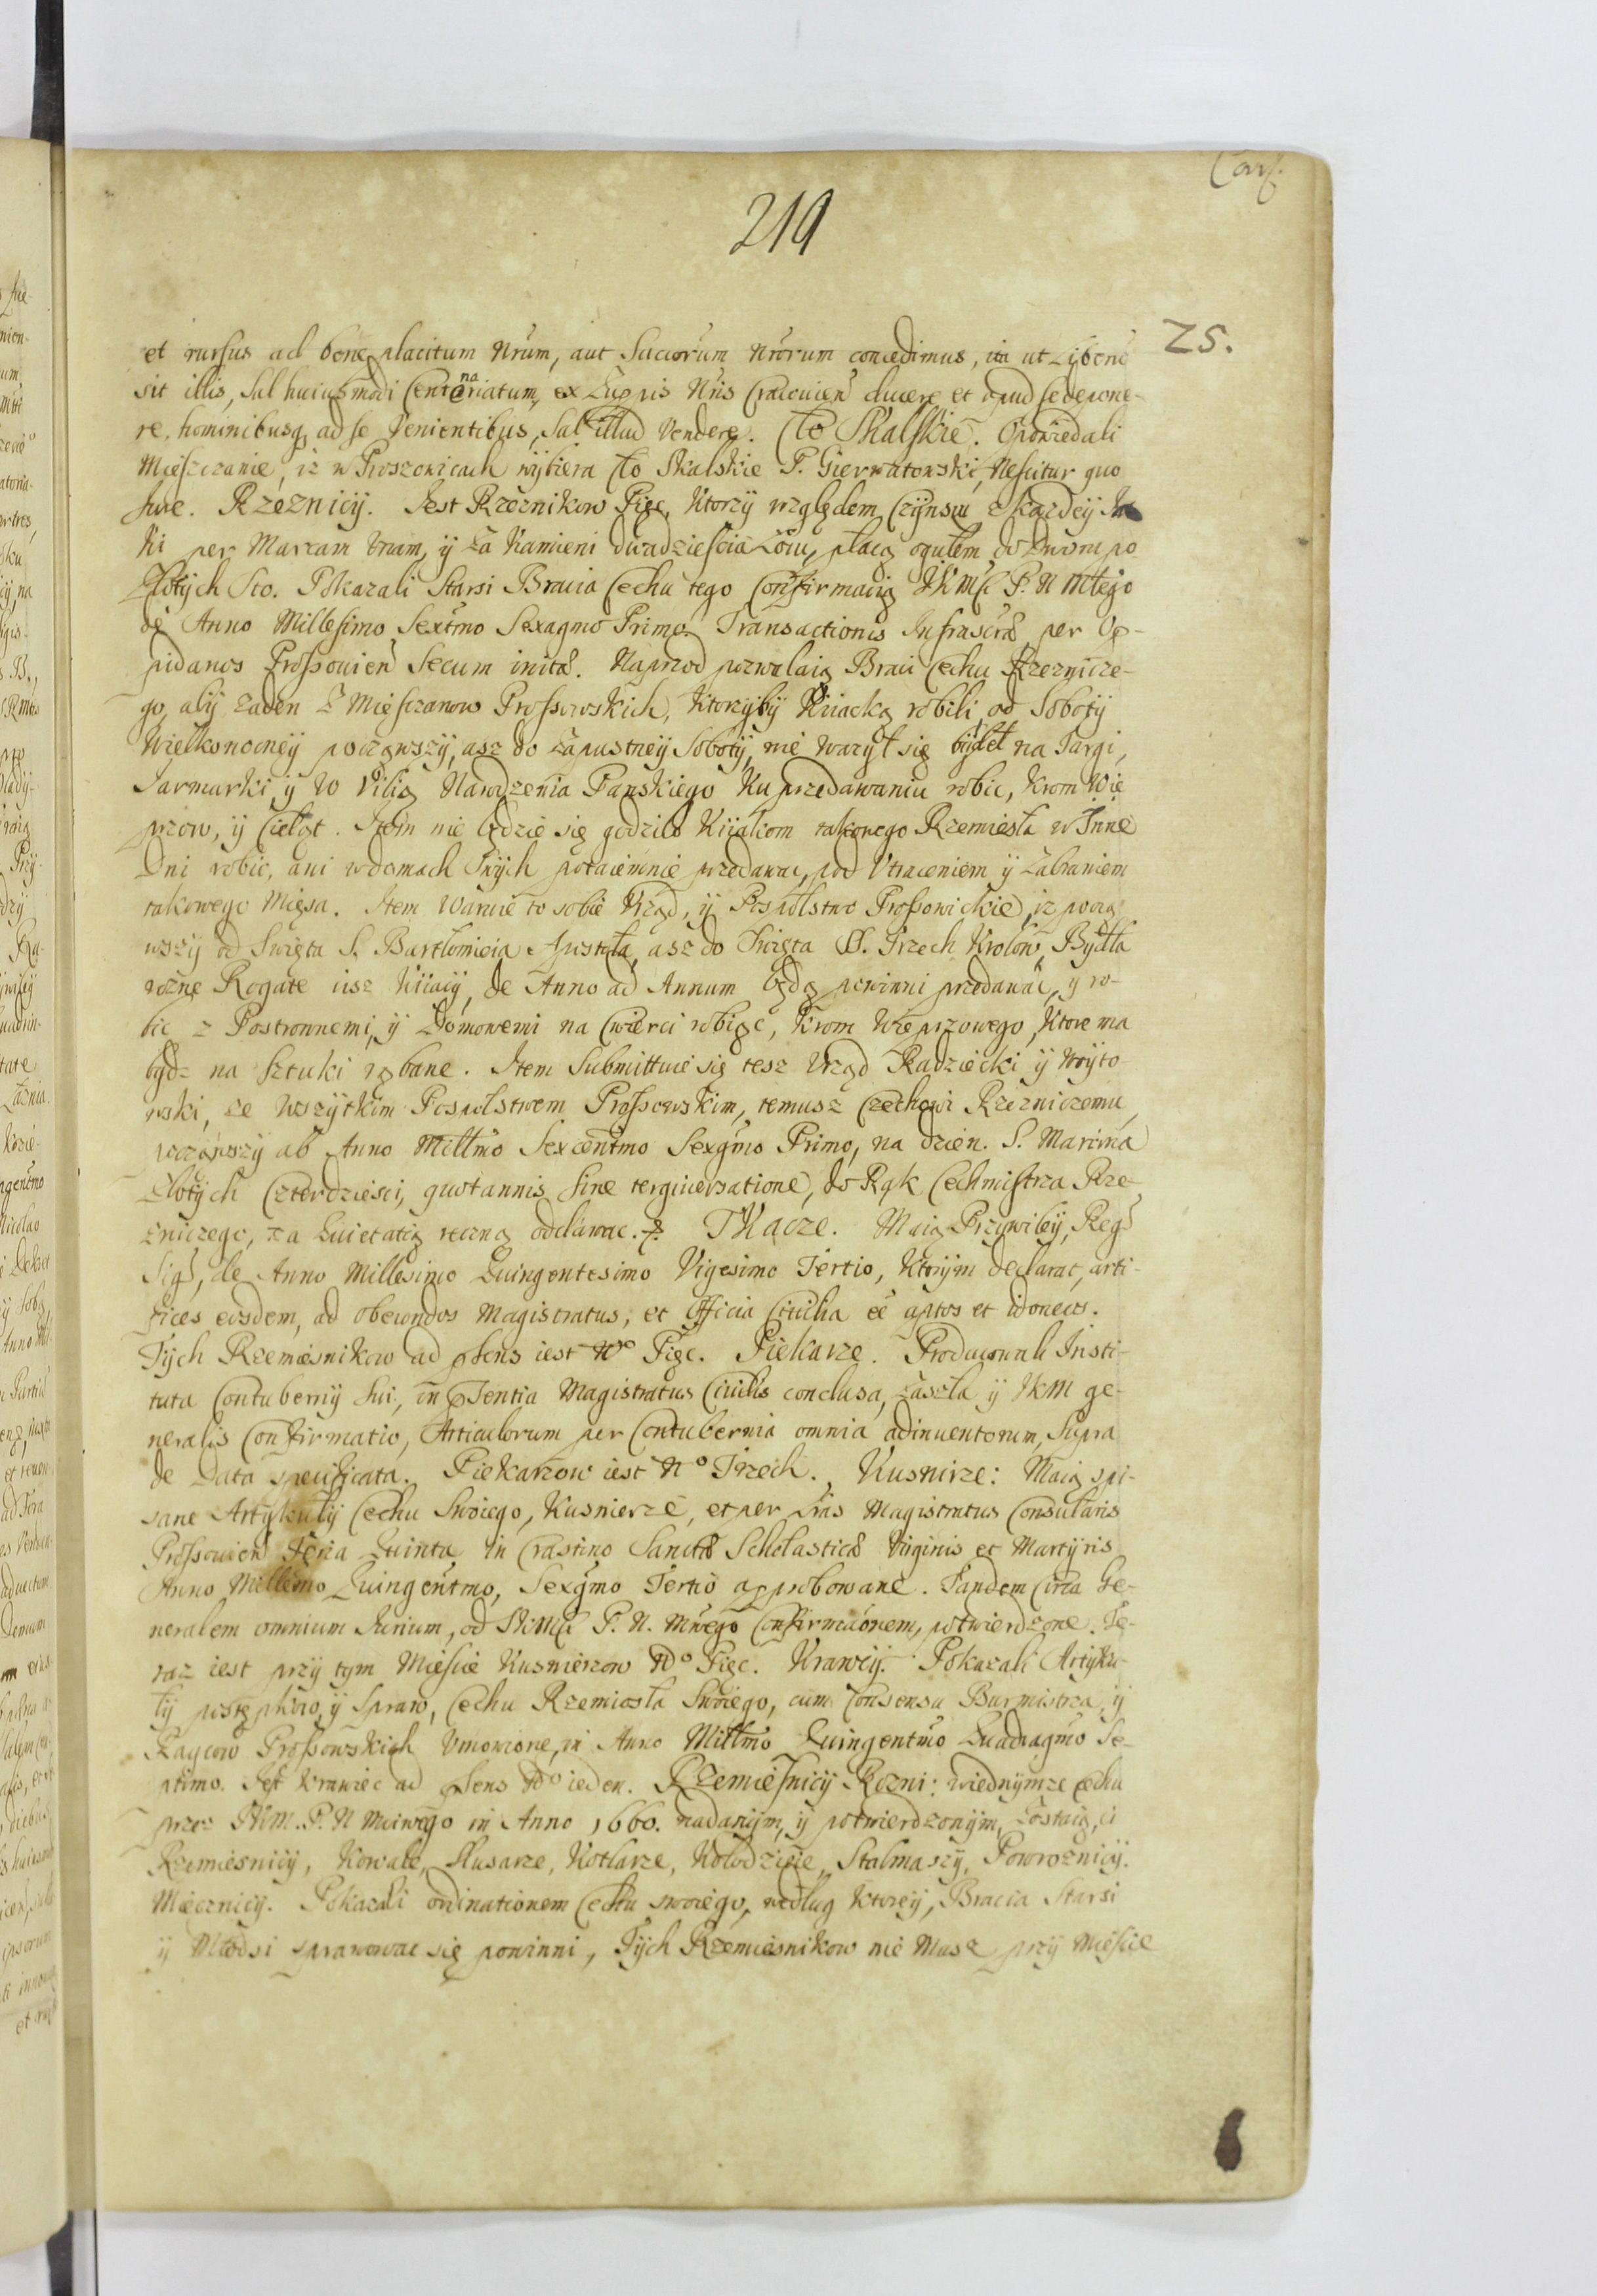 219
25.
et rursus ad bene placitum Nrum, aut Succorum Nrorum concedimus, ita ut Libere
sit illis, Sal huiusmodi Centenariatum, ex Zuppis Nris Cracovien ducere et apud se depone-
re, hominibusq ad se Venientibus, Sal illud Vendere. Clo Skalskie. Opowiedali
Miesczanie, iz w Proszowicach wybiera Clo Skalskie P. Gierwatowski, Nescitur quo
Iure. Rzeznicy. Iest Rzeznikow Pięc, Ktorzy względem Czynszu z kazdey Ia
ki per Marcam Unam, y za Kamieni dwadziescia Łoiu, płacą ogułem do Dworu po
Złotych Sto. Pokazali Starsi Bracia Cechu tego Confirmacią IKMsc P. N Młego
de Anno Millesimo Sextmo Sexagmo Primo. Transactionis Infrascrae per Op-
pidanos Prossovien Secum initae. Naprzod pozwalaią Braci Cechu Rzeznicze-
go, aby zaden z Miesczanow Prossowskich, Ktorzyby Kiiacką robili, od Soboty
Wielkonocney począwszy, asz do Zapustney Soboty, nie wazył się bydeł na Targi,
Iarmarki y w Vilią Narodzenia Panskiego Ku przedawaniu robic, krom Wie
przow, y Cieląt. Item nie będzie się godziło Kiiakom takowego Rzemiesła w Inne
Dni robic, ani w domach Swych potaiemnie przedawac, pod Utraceniem y Zabraniem
takowego Mięsa. Item Waruie to sobie Urząd, y Pospolstwo Prossowickie, iz począ
wszy od Swięta S. Bartłomieia Apostoła, asz do Swięta SS. Trzech Krolow, Bydła
rozne Rogate iisz Kiiacy, de Anno ad Annum będą powinni przedawac, y ro-
bic z Postronnemi, y Domowemi na Cwierci robiąc, Krom Wieprzowego, Ktore ma
bydz na Sztuki rąbane. Item Submittuie się tesz Urząd Radziecki y Woyto-
wski, ze wszytkim Pospolstwem Prossowskim, temusz Czechowi Rzezniczemu,
począwszy ab Anno Millmo Sexcentmo Sexgmo Primo, na dzien. S. Marcina
Złotych Czterdziesci, quotannis Sine tergiuersatione, do Rąk Cechmistrza Rze-
zniczego, za Quietatią ręczną oddawac. Tkacze. Maią Przywiley, Reg
Sig, de Anno Millesimo Quingentesimo Vigesimo Tertio, Ktorym declarat, arti-
fices eosdem, ad obeundos Magistratus, et Officia Ciuilia eē aptos et idoneos.
Tych Rzemiesnikow ad psens iest No Pięc. Piekarze. Producowali Insti-
tuta Contubernij Sui, in psentia Magistratus Ciuilis conclusa, Zaszła y IKM ge-
neralis Confirmatio, Articulorum per Contubernia omnia adinuentorum, Supra
de Data specificata. Piekarzow iest No Trzech. Kusnirze: Maią spi-
sane Artykuły Cechu Swoiego, Kusnierze, et per Lras Magistratus Consularis
Prossouien Feria Quinta in Crastino Sanctae Scholasticae Virginis et Martyris
Anno Millemo Quingentmo, Sexgmo Tertio approbowane. Tandem Circa Ge-
neralem omnium Iurium, od IKMsc P. N. Mwego Confirmaonem, potwierdzone. Te-
raz iest przy tym Miescie Kusnierzow No Pięc. Krawcy. Pokazali Artyku-
ły postępkow, y Spraw, Cechu Rzemiosła Swoiego, cum Consensu Burmistrza, y
Raycow Prossowskich Umowione, in Anno Millmo Quingentmo Quadragmo Se-
ptimo. Iest Krawiec ad psens No ieden. Rzemiesnicy Rozni: w iednymze Cechu
przez IKM. P. N Miłwego in Anno 1660. nadanym, y potwierdzonym, Zostaią, ci
Rzemiesnicy, Kowale, Slusarze, Kotlarze, Kołodzieie, Stalmaszy, Powroznicy.
Miecznicy. Pokazali ordinationem Cechu swoiego, według Ktorey, Bracia Starsi
y Młodsi sprawowac się powinni, Tych Rzemiesnikow nie Masz przy Miescie